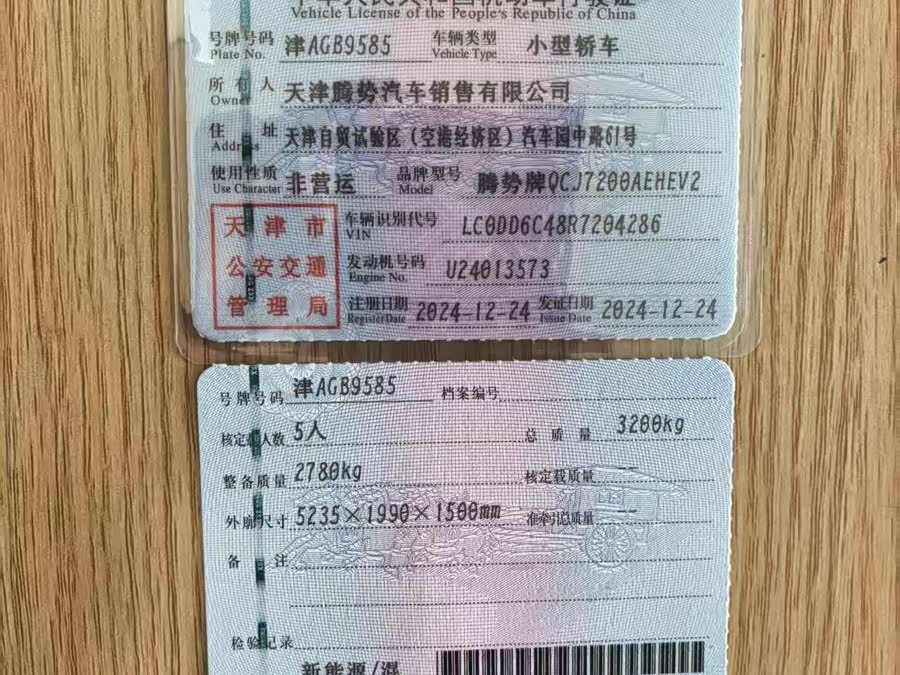 中华人民共和国机动车行驶证
Vehicle License of the People's Republic of China
号牌号码 津AGB9585 车辆类型 小型轿车
Plate No. Vehicle Type
所有人 天津腾势汽车销售有限公司
Owner
住址 天津自贸试验区(空港经济区)汽车园中路61号
Address
使用性质 非营运 品牌型号 腾势牌QCJ7200AEHEV2
Use Character Model
天津市 车辆识别代号 LC0DD6C48R7204286
VIN
公安交通 发动机号码 U24013573
Engine No.
管理局 注册日期 2024-12-24 发证日期 2024-12-24
Register Date Issue Date
号牌号码 津AGB9585 档案编号
核定载人数 5人 总质量 3200kg
整备质量 2780kg 核定载质量 --
外廓尺寸 5235×1990×1500mm 准牵引总质量 --
备注
检验记录
新能源/混